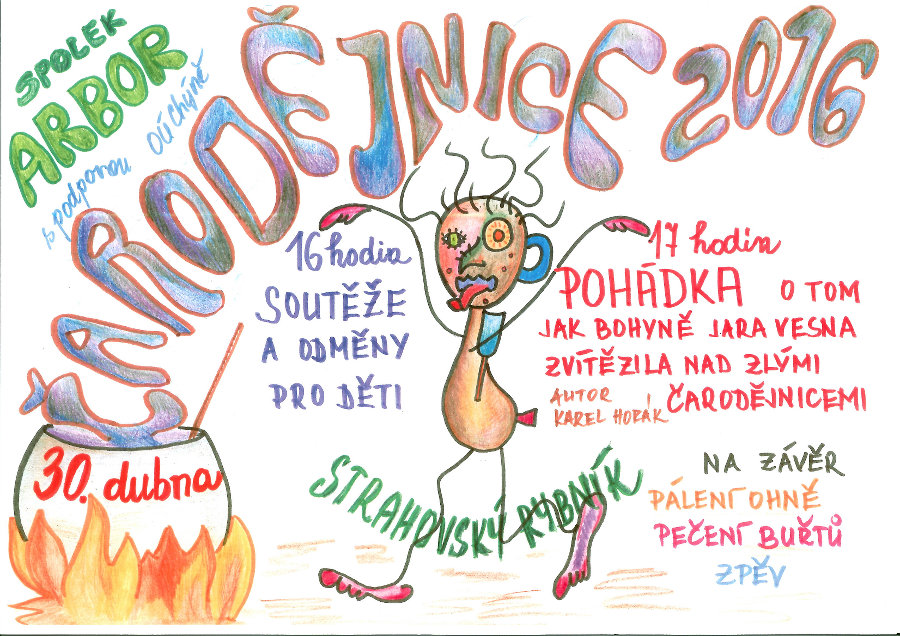 SPOLEK
ARBOR
s podporou OÚ Chýně
ČARODĚJNICE 2016
16 hodin
SOUTĚŽE
A ODMĚNY
PRO DĚTI
17 hodin
POHÁDKA O TOM
JAK BOHYNĚ JARA VESNA
ZVÍTĚZILA NAD ZLÝMI
ČARODĚJNICEMI
AUTOR
KAREL HORÁK
30. dubna
STRAHOVSKÝ RYBNÍK
NA ZÁVĚR
PÁLENÍ OHNĚ
PEČENÍ BUŘTŮ
ZPĚV